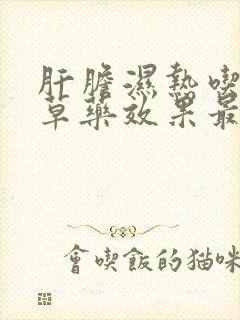 肝膽濕熱喫
草藥效果最
會喫飯的貓咪